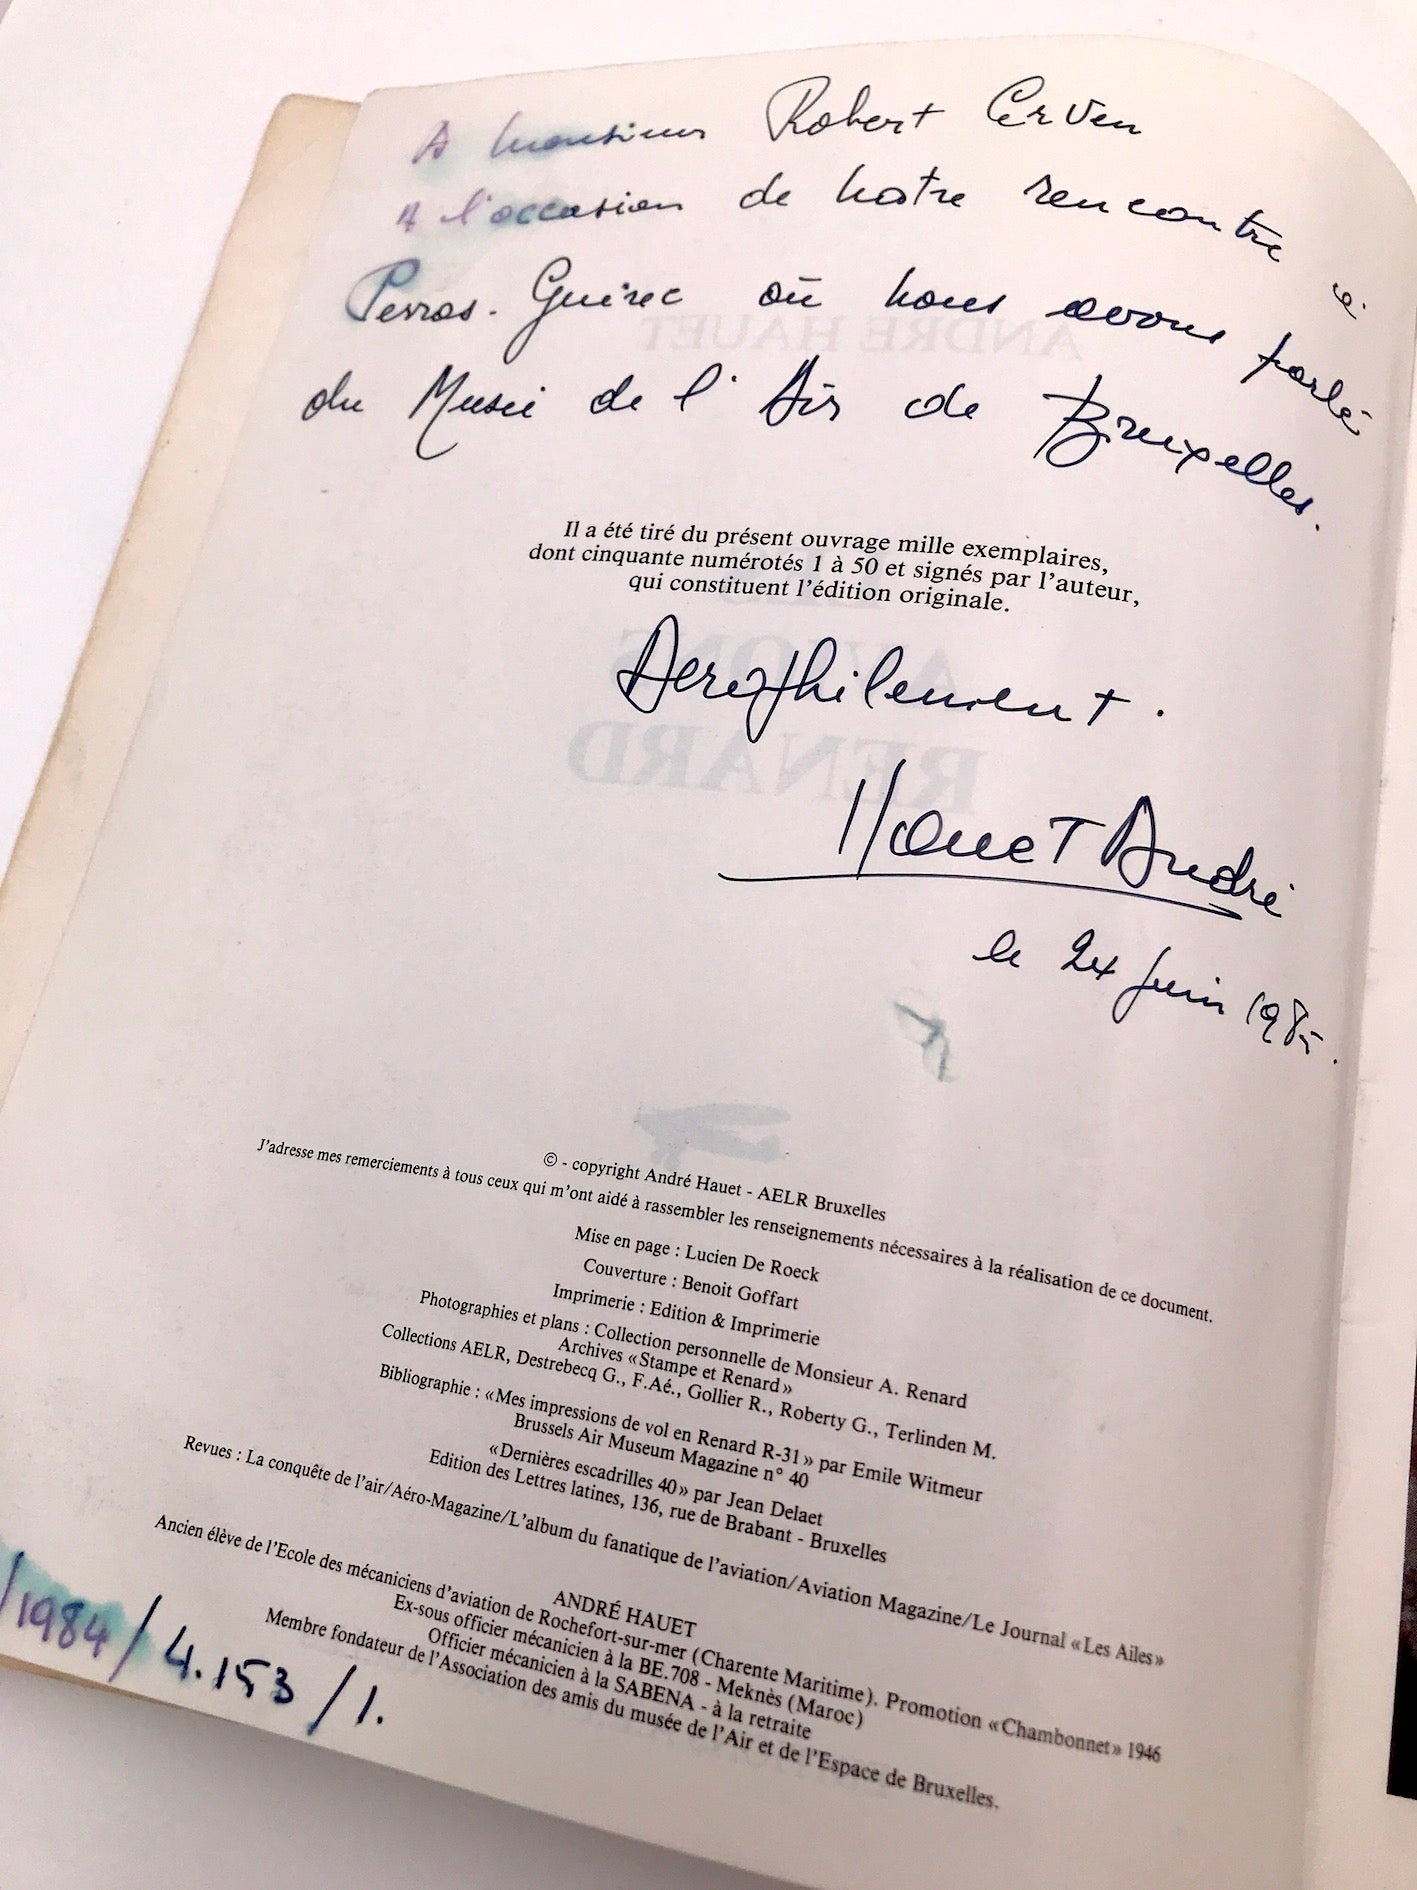 A Monsieur Robert Cerven
A l'occasion de notre rencontre à
Perros-Guirec où nous avons parlé
du Musée de l'Air de Bruxelles.
ANDRÉ HAUET
Il a été tiré du présent ouvrage mille exemplaires,
dont cinquante numérotés 1 à 50 et signés par l'auteur,
qui constituent l'édition originale.
AVIONS
Aerophilement.
RENARD
Hauet André
le 24 Juin 1985.
© - copyright André Hauet - AELR Bruxelles
J'adresse mes remerciements à tous ceux qui m'ont aidé à rassembler les renseignements nécessaires à la réalisation de ce document.
Mise en page : Lucien De Roeck
Couverture : Benoit Goffart
Imprimerie : Edition & Imprimerie
Photographies et plans : Collection personnelle de Monsieur A. Renard
Archives «Stampe et Renard»
Collections AELR, Destrebecq G., F.Aé., Gollier R., Roberty G., Terlinden M.
Bibliographie : «Mes impressions de vol en Renard R-31» par Emile Witmeur
Brussels Air Museum Magazine n° 40
«Dernières escadrilles 40» par Jean Delaet
Edition des Lettres latines, 136, rue de Brabant - Bruxelles
Revues : La conquête de l'air/Aéro-Magazine/L'album du fanatique de l'aviation/Aviation Magazine/Le Journal «Les Ailes»
ANDRÉ HAUET
Ancien élève de l'Ecole des mécaniciens d'aviation de Rochefort-sur-mer (Charente Maritime). Promotion «Chambonnet» 1946
Ex-sous officier mécanicien à la BE.708 - Meknès (Maroc)
Officier mécanicien à la SABENA - à la retraite
Membre fondateur de l'Association des amis du musée de l'Air et de l'Espace de Bruxelles.
/1984/4.153/1.